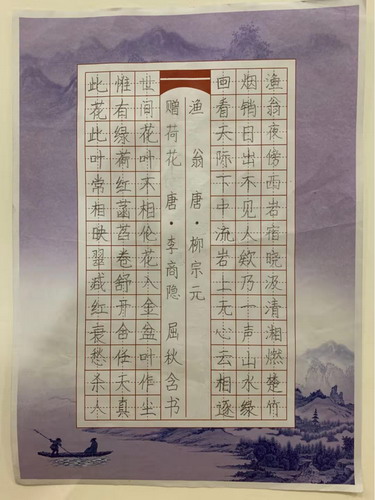 渔翁夜傍西岩宿晓汲清湘燃楚竹
烟销日出不见人欸乃一声山水绿
回看天际下中流岩上无心云相逐
渔翁 唐·柳宗元
赠荷花 唐·李商隐 屈秋含书
世间花叶不相伦花入金盆叶作尘
惟有绿荷红菡萏卷舒开合任天真
此花此叶常相映翠减红衰愁杀人